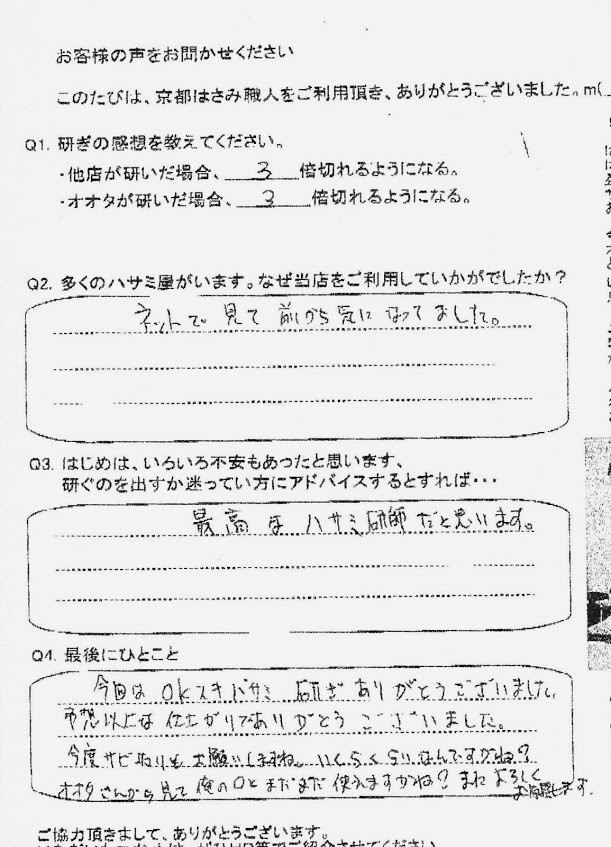 お客様の声をお聞かせください
このたびは、京都はさみ職人をご利用頂き、ありがとうございました。m(
Q1. 研ぎの感想を教えてください。
・他店が研いだ場合、 3 倍切れるようになる。
・オオタが研いだ場合、 3 倍切れるようになる。
Q2. 多くのハサミ屋がいます。なぜ当店をご利用していかがでしたか?
ネットで見て前から気になってました。
Q3. はじめは、いろいろ不安もあったと思います、
研ぐのを出すか迷ってい方にアドバイスするとすれば・・・
最高なハサミ研師だと思います。
Q4. 最後にひとこと
今回はOKスキバサミ研ぎありがとうございました。
予想以上な仕上がりでありがとうございました。
今度サビ取りもお願いしますね。いくらくらいなんですかね?
オオタさんから見て俺のOとまだまだ使えますかね?またよろしく
お願します。
ご協力頂きまして、ありがとうございます。